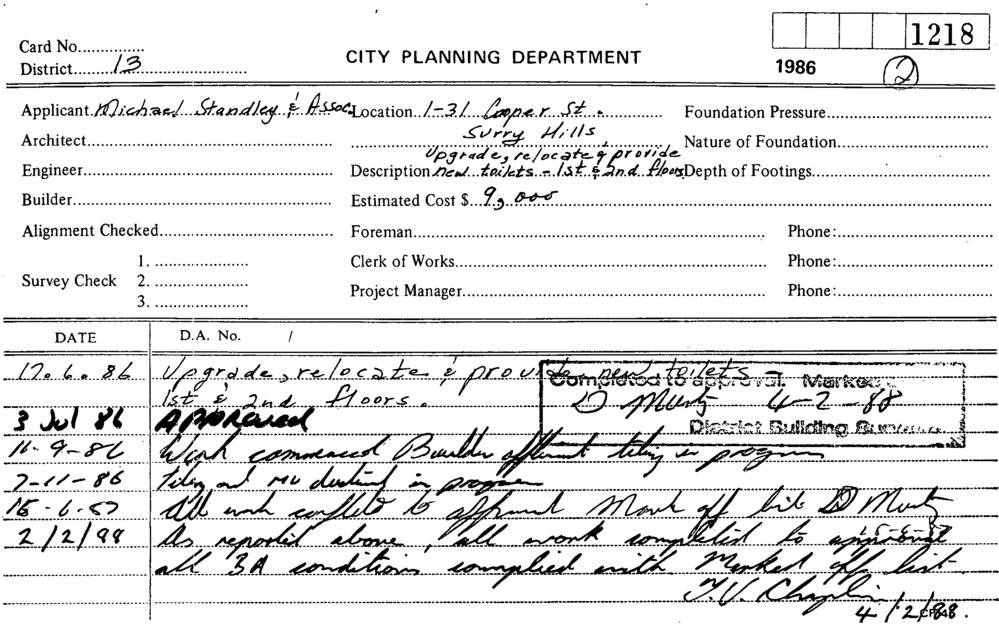 1218
Card No...............
District........13..........................
CITY PLANNING DEPARTMENT
1986
2
Applicant Michael Standley & Assoc.
Location 1-31 Cooper St.
Surry Hills
Foundation Pressure
Architect
Nature of Foundation
Engineer
Upgrade, relocate & provide
Description new toilets - 1st & 2nd floors
Depth of Footings
Builder
Estimated Cost $ 9,000
Alignment Checked
Foreman
Phone:
Survey Check 1.
2.
3.
Clerk of Works
Phone:
Project Manager
Phone:
DATE D.A. No. /
17.6.86 Upgrade, relocate & provide new toilets
1st & 2nd floors.
Completed to approval. Marked
4-2-88
District Building
3 Jul 86 APPROVED
11-9-86 Work commenced Builder tiling in progress
7-11-86 Tiling and in progress
15-6-87 All work to approval Mark off list
15-6-87
2/2/88 As reported above, all work completed to approval
all BA conditions complied with Marked off list
T.V. Chaplin
4/2/88.